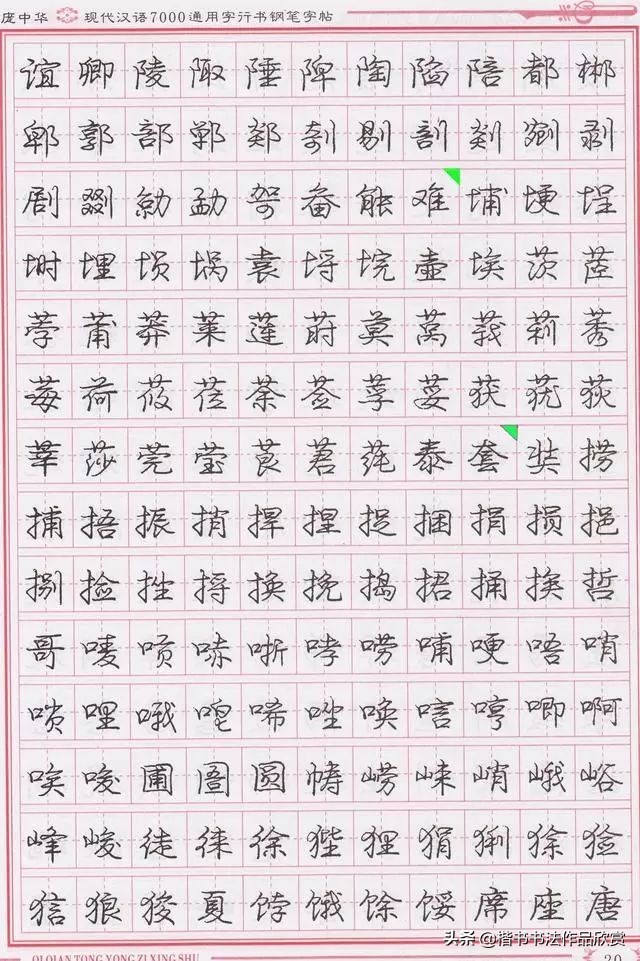 庞中华 现代汉语7000通用字行书钢笔字帖
谊卿陵陬陲陴陶陷陪都郴
郫郭部郸郯剞剔剖剡剜剥
剧剟勍勐哿畚能难埔埂埕
埘埋埙埚袁埒垸壶埃茨茬
荸莆莽莱莲莳莫莴莪莉莠
莓荷莜莅荼莶莩荽获莸荻
莘莎莞莹莨莙莼泰套奘捞
捕捂振捎捍捏捉捆捐损挹
捌捡挫捋换挽捣捃捅挨哲
哥唛唝哧哳哮唠哺哽唔哨
唢哩哦唣唏唑唤唁哼唧啊
唉唆圃圄圆帱崂崃峭峨峪
峰峻徒徕徐狴狸狷猁狳猃
狺狼狻夏饽饿馀馁席座唐
QI QIAN TONG YONG ZI XING SHU 20
头条 @楷书书法作品欣赏